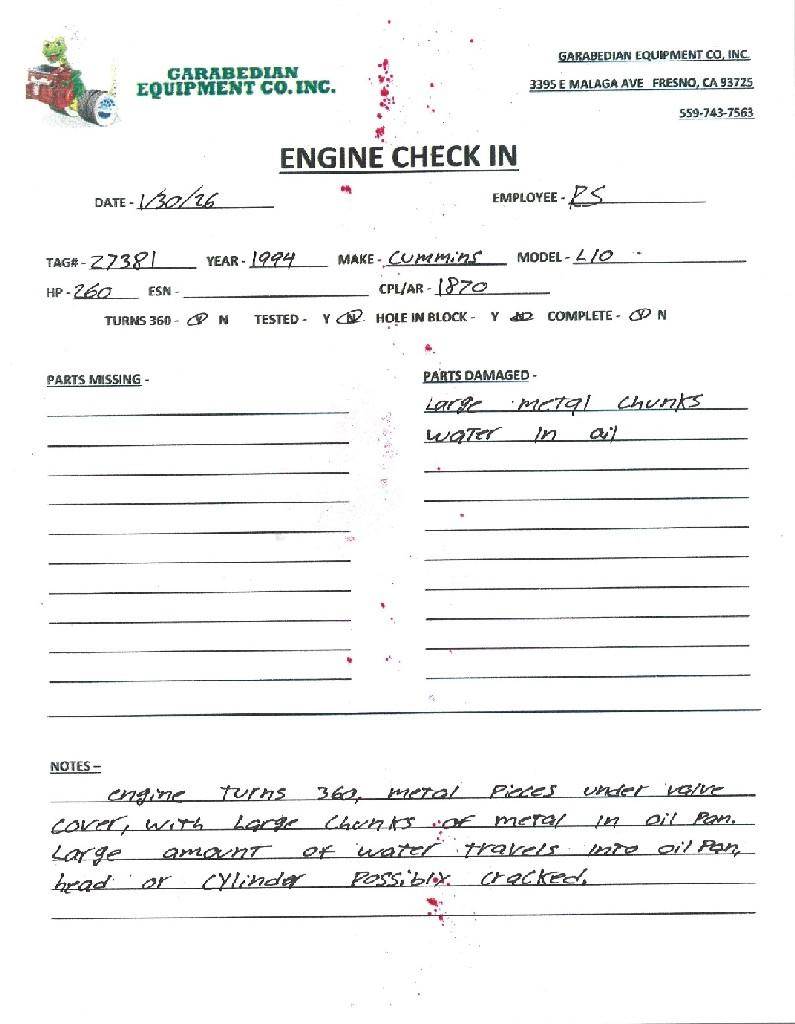 GARABEDIAN
EQUIPMENT CO. INC.
GARABEDIAN EQUIPMENT CO, INC.
3395 E MALAGA AVE FRESNO, CA 93725
559-743-7563
ENGINE CHECK IN
DATE - 1/30/26 EMPLOYEE - RS
TAG# - 27381 YEAR - 1994 MAKE - Cummins MODEL - L10
HP - 260 ESN - CPL/AR - 1870
TURNS 360 - Y N TESTED - Y N HOLE IN BLOCK - Y N COMPLETE - Y N
PARTS MISSING - PARTS DAMAGED -
Large metal chunks
water in oil
NOTES –
engine turns 360, metal pieces under valve
cover, with large chunks of metal in oil pan.
Large amount of water travels into oil pan,
head or cylinder possibly cracked.